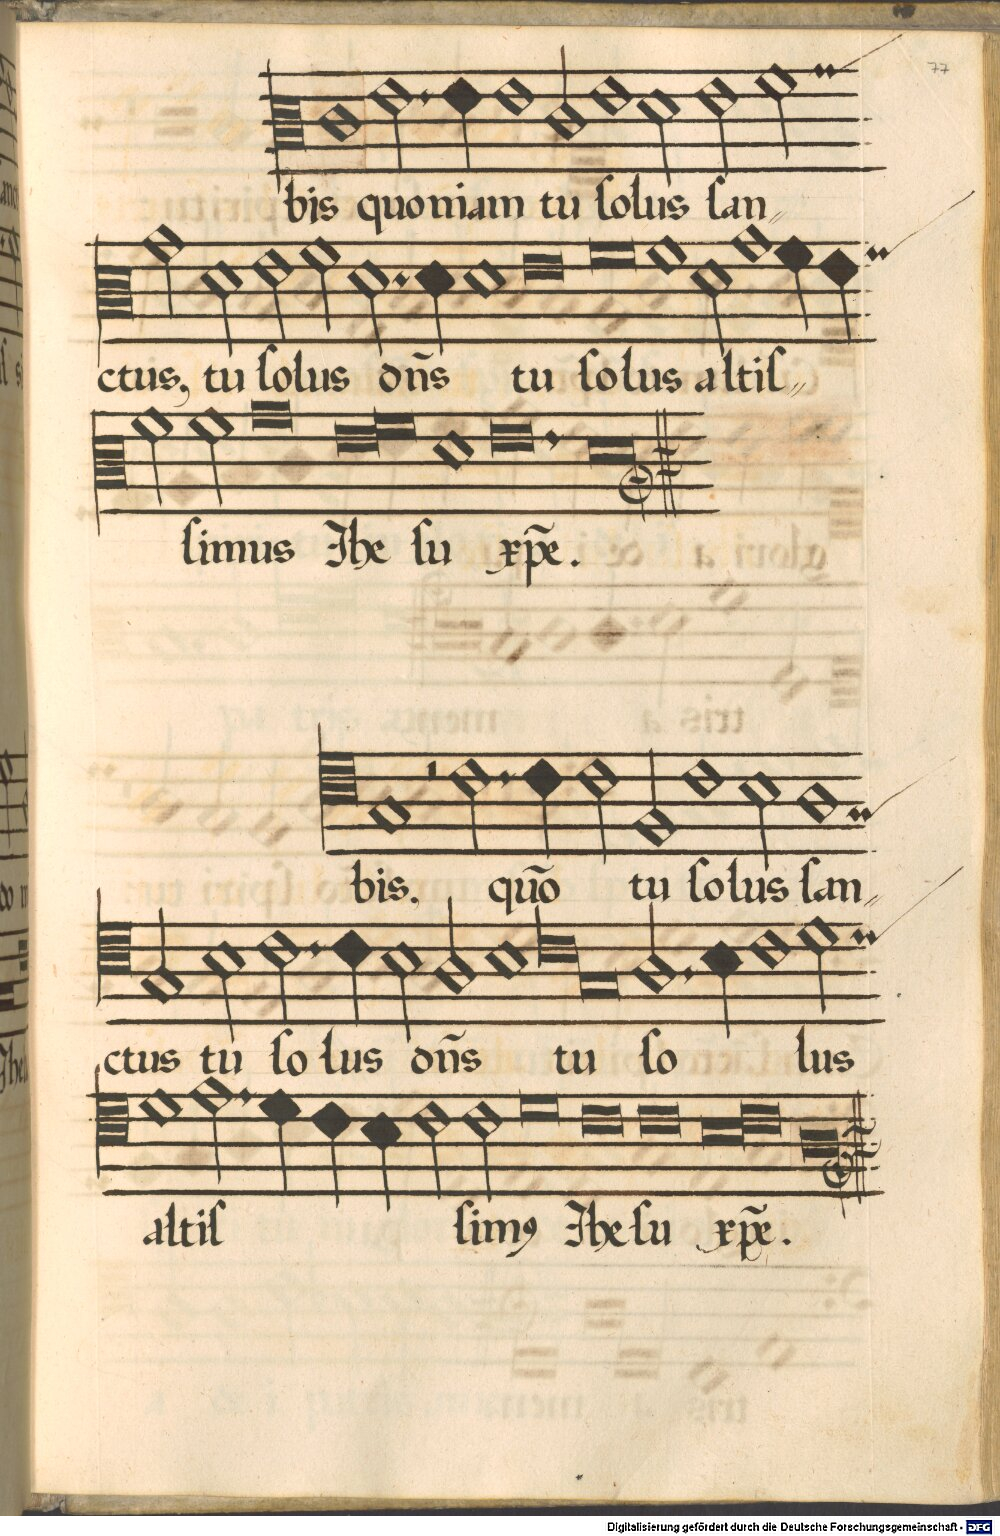 77
bis quoniam tu solus san„
ctus, tu solus dn̄s tu solus altis„
simus Jhe su xp̄e.
bis. quō tu solus san„
ctus tu so lus dn̄s tu so lus
altis simꝯ Jhe su xp̄e.
Digitalisierung gefördert durch die Deutsche Forschungsgemeinschaft - DFG